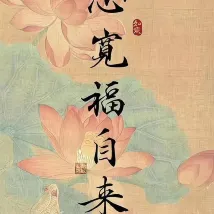 寬福自来